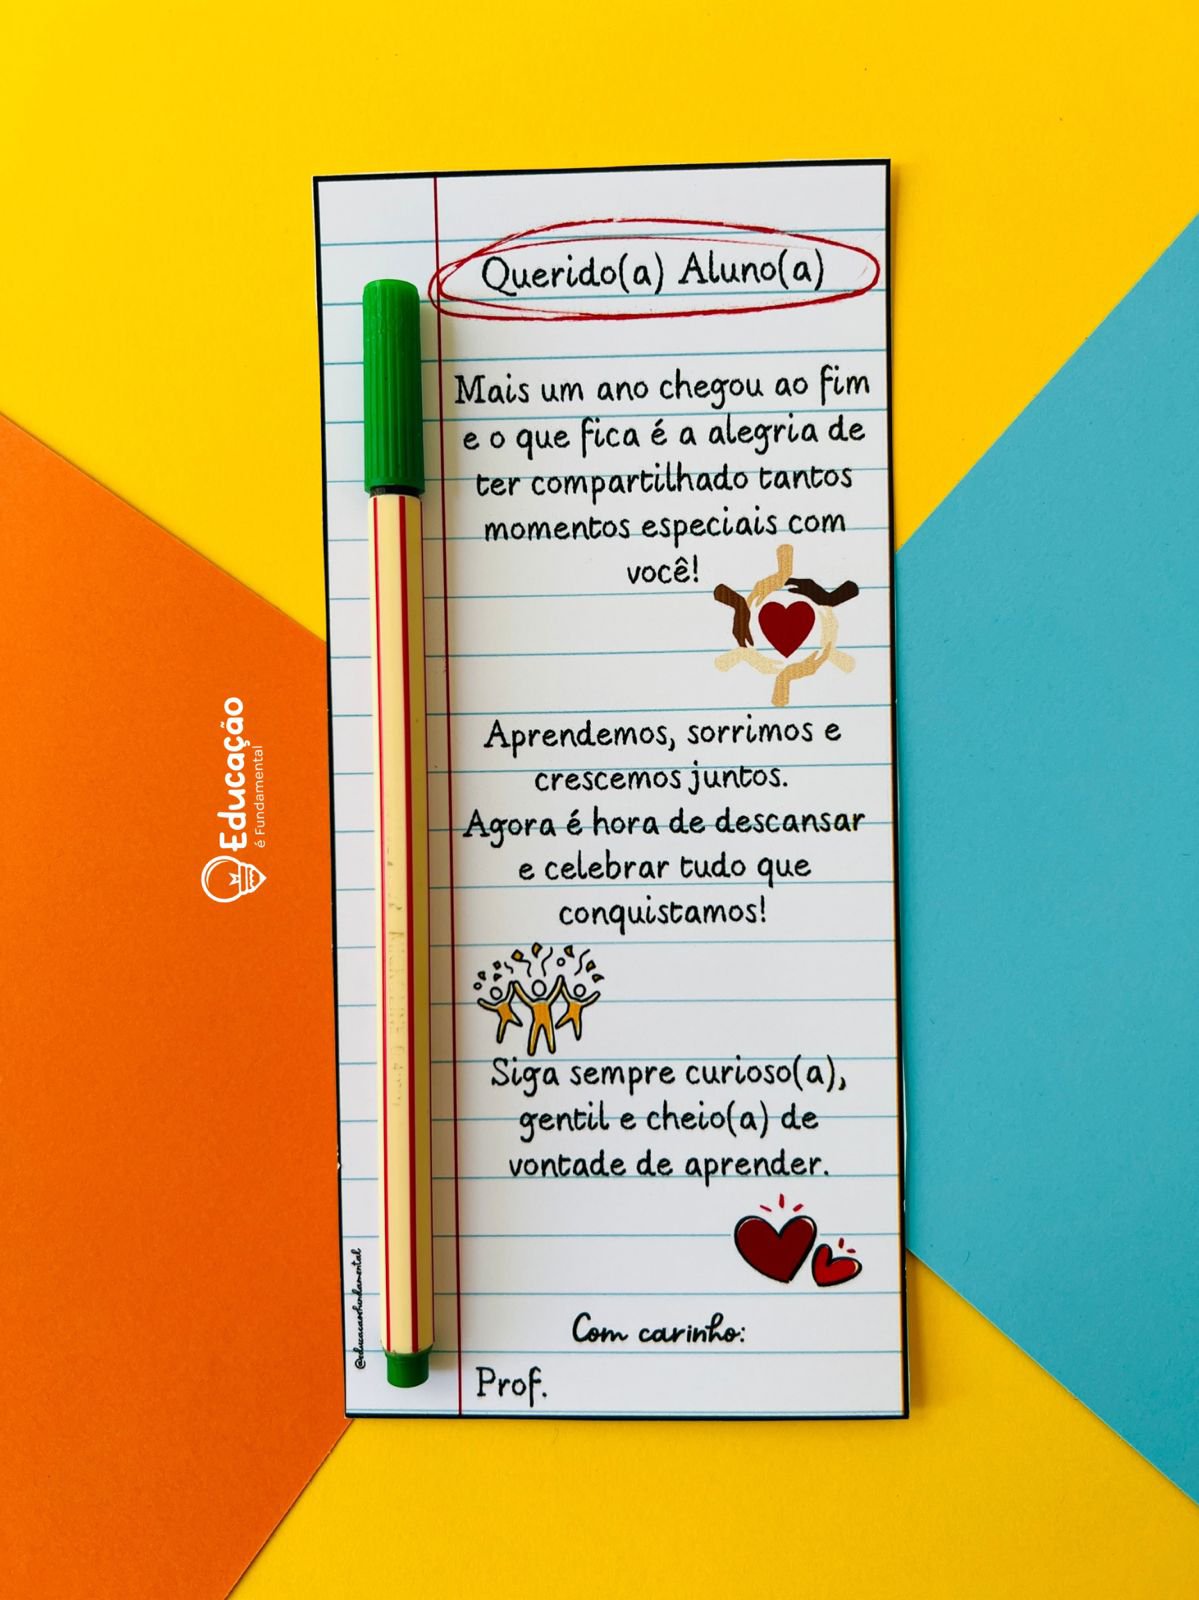 Querido(a) Aluno(a)
Mais um ano chegou ao fim
e o que fica é a alegria de
ter compartilhado tantos
momentos especiais com
você!
Aprendemos, sorrimos e
crescemos juntos.
Agora é hora de descansar
e celebrar tudo que
conquistamos!
Siga sempre curioso(a),
gentil e cheio(a) de
vontade de aprender.
Com carinho:
Prof.
@educacaoefundamental
Educação
é Fundamental